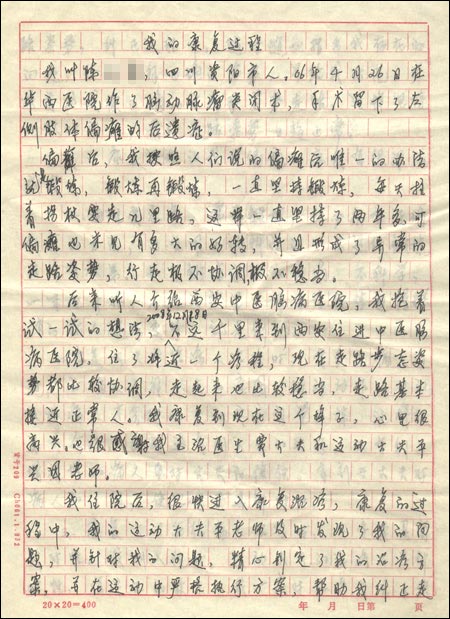 我的康复过程
我叫陈 ，四川资阳市人。06年4月26日在
华西医院作了脑动脉瘤夹闭术，手术留下了左
侧肢体偏瘫的后遗症
偏瘫后，我按照人们说的偏瘫后唯一的办法
锻炼，锻炼再锻炼，一直坚持锻炼，每天拄
着拐杖要走几里路，这样一直坚持了两年多可
偏瘫也未见有多大的好转，并且形成了异常的
走路姿势，行走极不协调，极不稳当。
后来听人介绍西安中医脑病医院，我抱着
试一试的想法，2008年12月8日不远千里来到西安住进中医脑
病医院，住了将近 个疗程，现在走路步态姿
势都比较协调，走起来也比较稳当，走路基本
接近正常人。我康复到现在这个样子，心里很
高兴。也很感谢我主治医生 大夫和运动大夫平
老师。
我住院后，很快进入康复治疗，康复的过
程中，我的运动大夫平老师及时发现了我的问
题，并针对我的问题，精心制定了我的治疗方
案，并在运动中严格执行方案，帮助我纠正走
20×20=400 年 月 日第 页